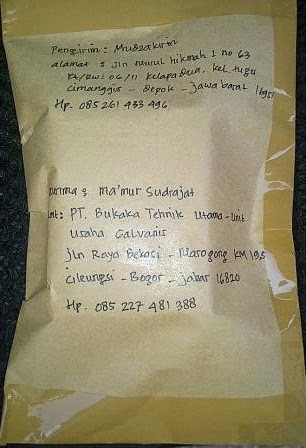 Pengirim : Mudzakirin
alamat : Jln Nurul hikmah I no 63
Rt/Rw: 06/11 Kelapa Dua, kel. tugu
Cimanggis - Depok - Jawa barat 16951
Hp. 085 261 433 496
erima : Ma'mur Sudrajat
mt : PT. Bukaka Tehnik Utama - Unit
Usaha Galvanis
jln Raya Bekasi - Narogong KM 19,5
Cileungsi - Bogor - Jabar 16820
Hp. 085 227 481 388